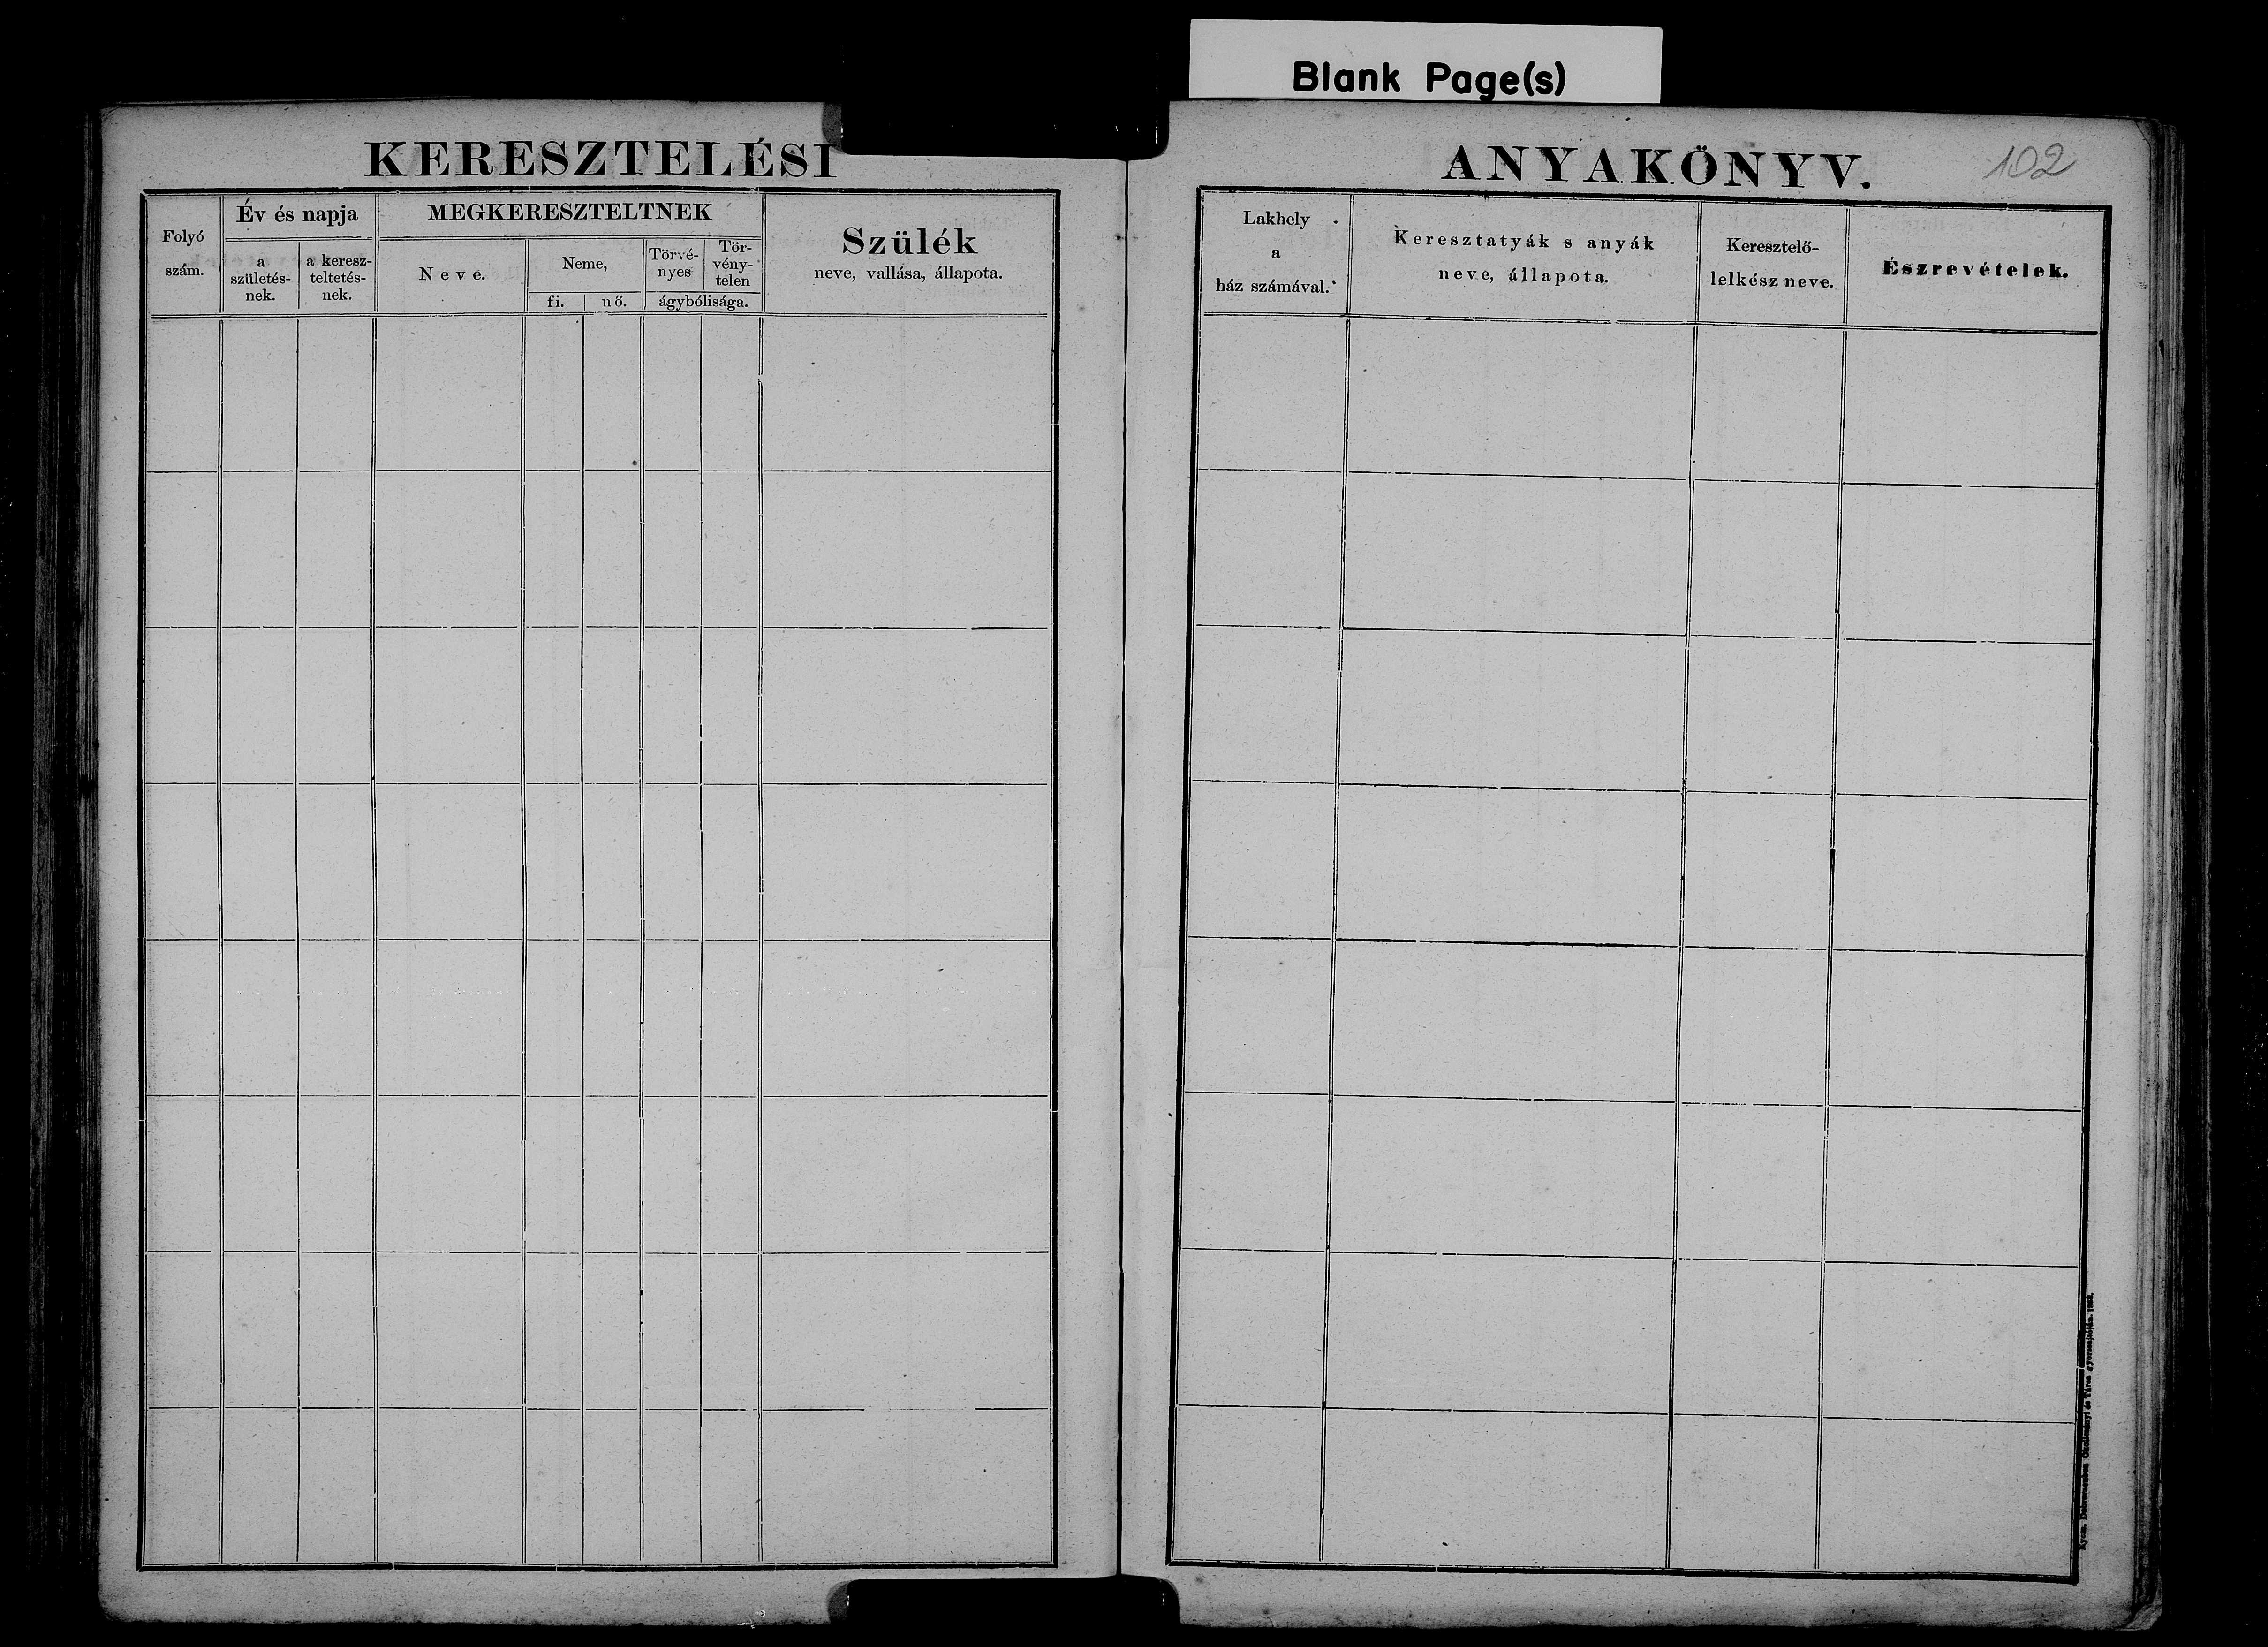 Blank Page(s)
KERESZTELÉSI
Folyó
szám.
Év és napja
a
születés-
nek.
a keresz-
teltetés-
nek.
MEGKERESZTELTNEK
Neve.
Neme,
fi.
nő.
Törvé-
nyes
Tör-
vény-
telen
ágybólisága.
Szülék
neve, vallása, állapota.
ANYAKÖNYV.
102
Lakhely
a
ház számával.
Keresztatyák s anyák
neve, állapota.
Keresztelő-
lelkész neve.
Észrevételek.